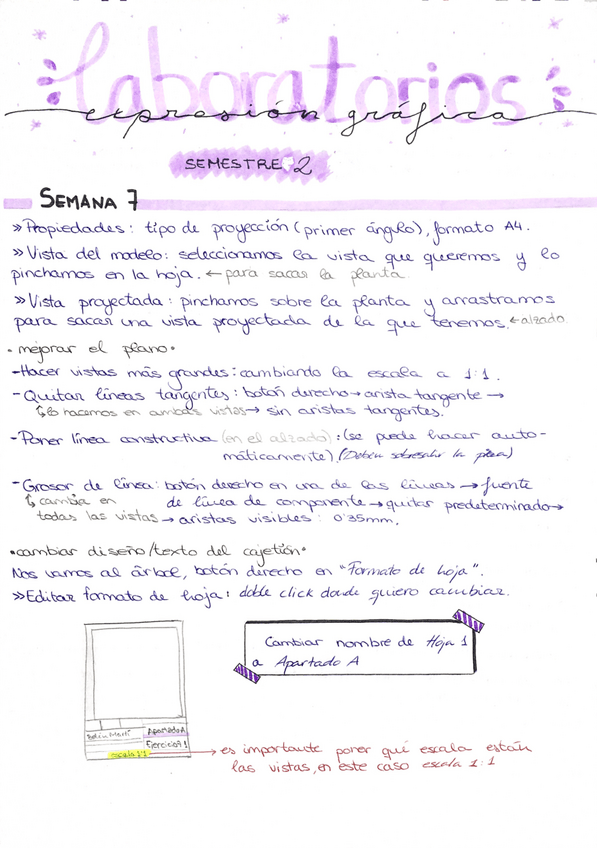 laboratorios
expresión gráfica
SEMESTRE 2
SEMANA 7
» Propiedades: tipo de proyección (primer ángulo), formato A4.
» Vista del modelo: seleccionamos la vista que queremos y lo
pinchamos en la hoja. ← para sacar la planta.
» Vista proyectada: pinchamos sobre la planta y arrastramos
para sacar una vista proyectada de la que tenemos. ← alzado.
• mejorar el plano •
- Hacer vistas más grandes: cambiando la escala a 1:1.
- Quitar líneas tangentes: botón derecho → arista tangente →
lo hacemos en ambas vistas → sin aristas tangentes.
- Poner línea constructiva (en el alzado): (se puede hacer auto-
máticamente) (Deben sobresalir la pieza)
- Grosor de línea: botón derecho en una de las líneas → fuente
cambia en de línea de componente → quitar predeterminado →
todas las vistas → aristas visibles: 0'35mm.
• cambiar diseño/texto del cajetión •
Nos vamos al árbol, botón derecho en "Formato de hoja".
» Editar formato de hoja: doble click donde quiero cambiar.
Cambiar nombre de Hoja 1
a Apartado A
Belén Martí Apartado A
Ejercicio 1
escala 1:1
→ es importante poner qué escala están
las vistas, en este caso escala 1:1